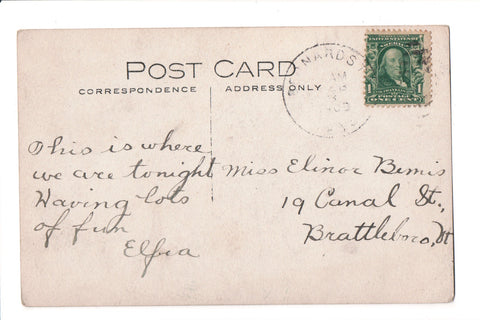 POST CARD
CORRESPONDENCE
ADDRESS ONLY
This is where
we are tonight
Having lots
of fun
Miss Elinor Bemis
19 Canal St.,
Brattleboro, Vt
1
ONE CENT